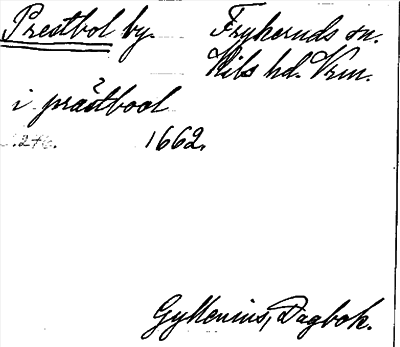 Prestbol by. Frykeruds sn.
Kils hd. Vrm.
i prästbool
1662.
Gyllenius, Dagbok.